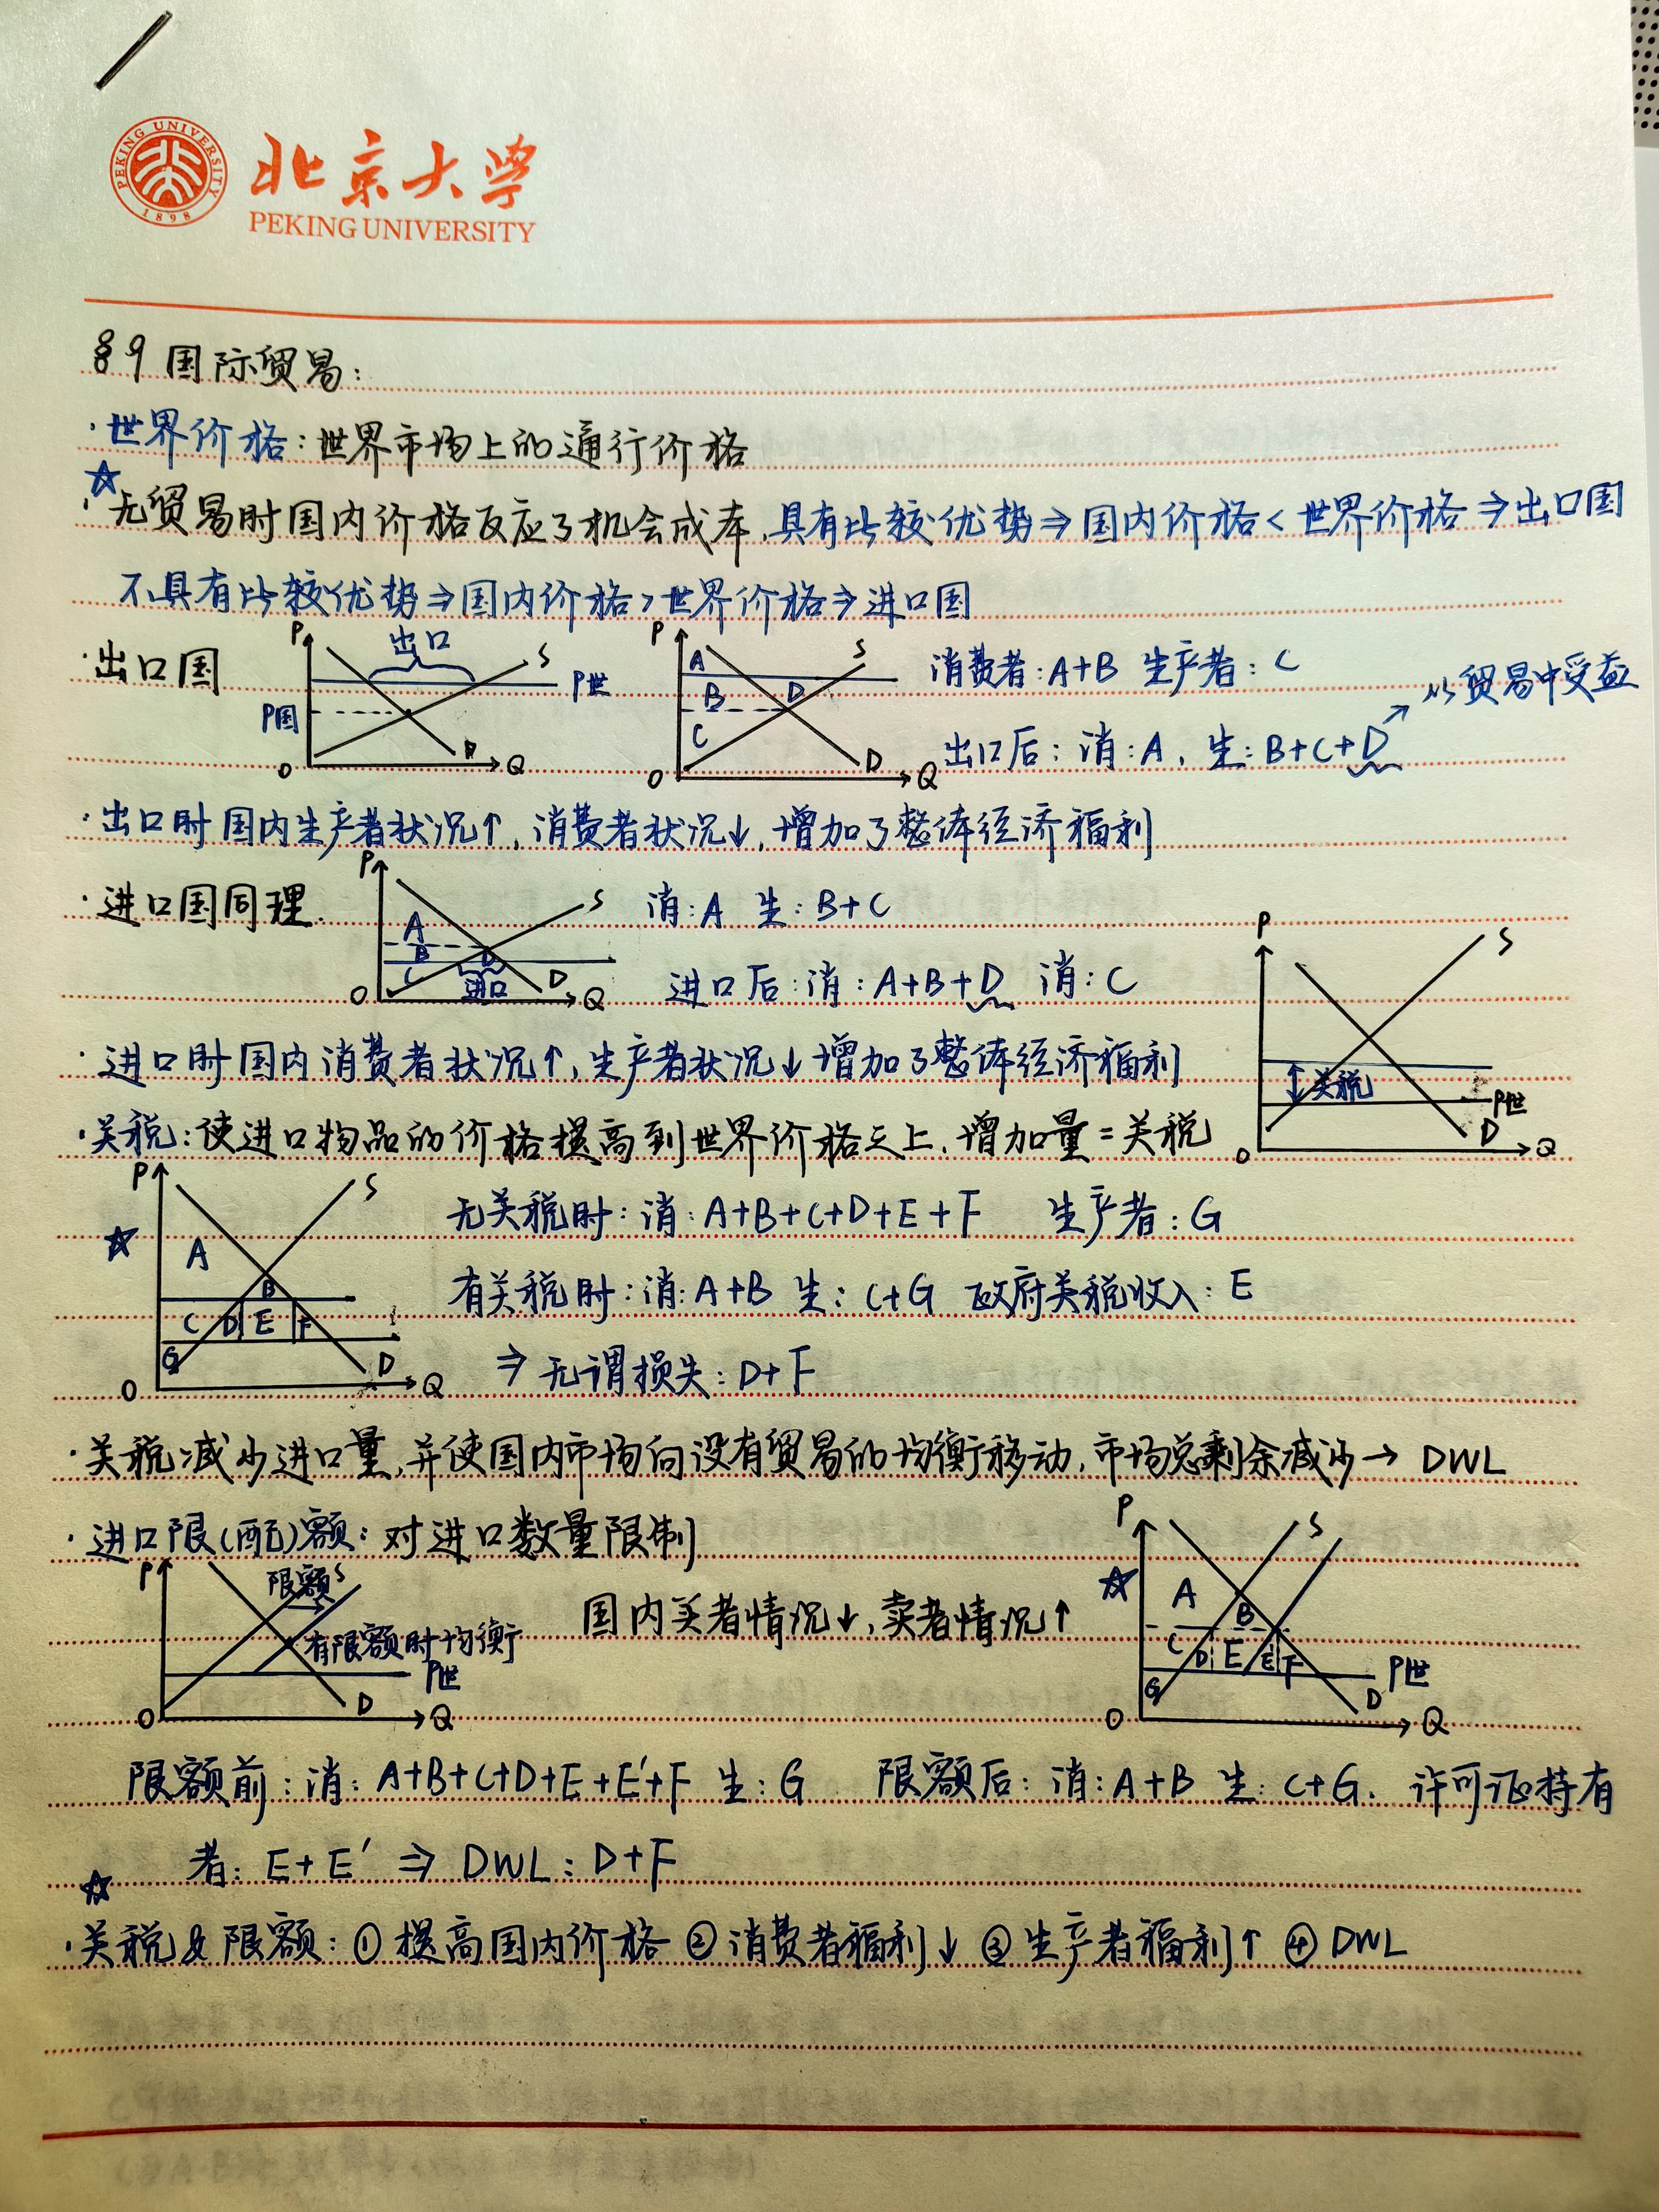 PEKING UNIVERSITY
1898
北京大学
PEKING UNIVERSITY
§9 国际贸易:
·世界价格:世界市场上的通行价格
☆
·无贸易时国内价格反应了机会成本,具有比较优势⇒国内价格<世界价格⇒出口国
不具有比较优势⇒国内价格>世界价格⇒进口国
·出口国
P 出口 S P世 P国 D O Q
P A B C D S D O Q
消费者:A+B 生产者:C
从贸易中受益
出口后:消:A,生:B+C+D
·出口时国内生产者状况↑,消费者状况↓,增加了整体经济福利
·进口国同理.
P A B C D S 进口 D O Q
消:A 生:B+C
进口后:消:A+B+D 消:C
P S 关税 P世 D O Q
·进口时国内消费者状况↑,生产者状况↓增加了整体经济福利
·关税:使进口物品的价格提高到世界价格之上,增加量=关税
☆
P S A B C D E F G D O Q
无关税时:消:A+B+C+D+E+F 生产者:G
有关税时:消:A+B 生:C+G 政府关税收入:E
⇒无谓损失:D+F
·关税减少进口量,并使国内市场向没有贸易的均衡移动,市场总剩余减少→DWL
·进口限(配)额:对进口数量限制
P 限额 S 有限额时均衡 P世 D O Q
国内买者情况↓,卖者情况↑
☆
P S A B C D E E' F G P世 D O Q
限额前:消:A+B+C+D+E+E'+F 生:G 限额后:消:A+B 生:C+G. 许可证持有
者:E+E' ⇒ DWL:D+F
☆
·关税&限额:①提高国内价格 ②消费者福利↓ ③生产者福利↑ ④DWL